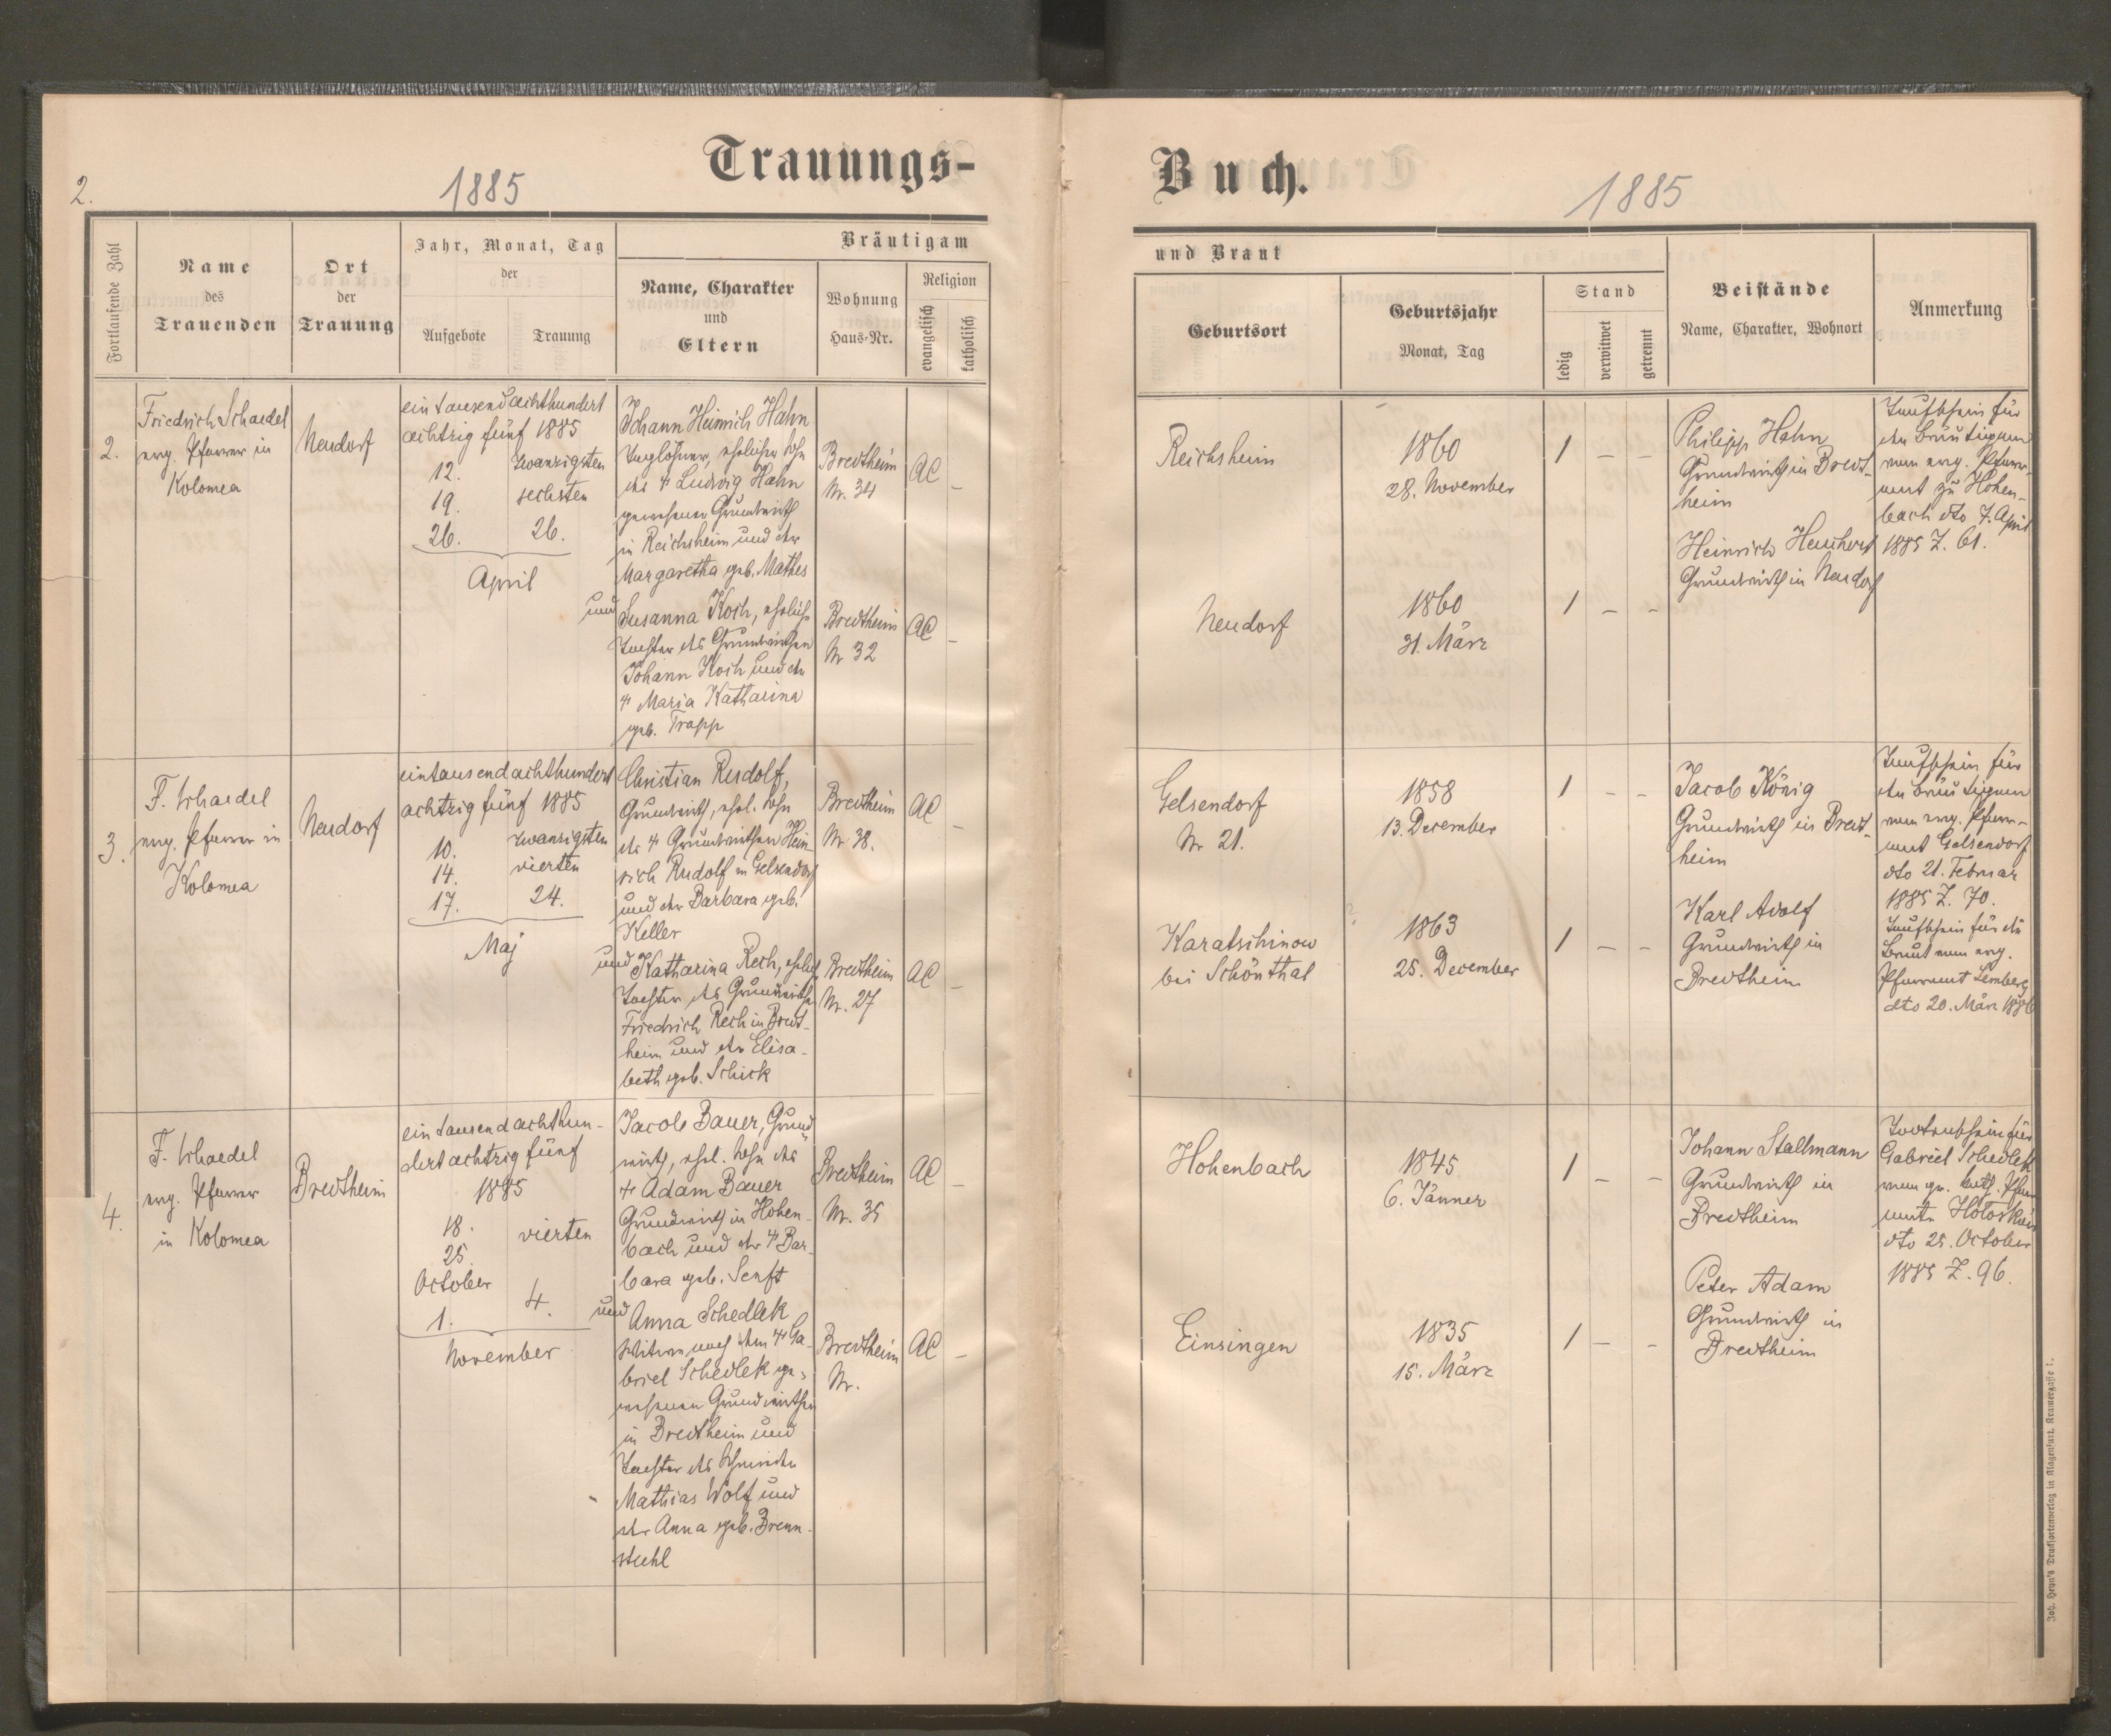 2.
1885
Trauungs-
Fortlaufende Zahl
Name
des
Trauenden
Ort
der
Trauung
Jahr, Monat, Tag
der
Aufgebote
Trauung
Bräutigam
Name, Charakter
und
Eltern
Wohnung
Haus-Nr.
Religion
evangelisch
katholisch
2.
Friedrich Schaedel
evg. Pfarrer in
Kolomea
Neudorf
ein tausend achthundert
achtzig fünf 1885
12.
19.
26.
zwanzigsten
sechsten
26.
April
Johann Heinrich Hahn
Taglöhner, ehelicher Sohn
des † Ludwig Hahn
gewesener Grundwirth
in Reichsheim und der
Margaretha geb. Mathes
und
Susanna Koch, eheliche
Tochter des Grundwirthen
Johann Koch und der
† Maria Katharina
geb. Trapp
Bredtheim
Nr. 34
AC
–
Bredtheim
Nr 32
AC
–
3.
F. Schaedel
evg. Pfarrer in
Kolomea
Neudorf
eintausend achthundert
achtzig fünf 1885
10.
14.
17.
zwanzigsten
vierten
24.
Maj
Christian Rudolf,
Grundwirth, ehel. Sohn
des † Grundwirthen Hein-
rich Rudolf in Gelsendorf
und der Barbara geb.
Keller
und
Katharina Rech, ehelich
Tochter des Grundwirthen
Friedrich Rech in Bredt-
heim und der Elisa-
beth geb. Schick
Bredtheim
Nr 38.
AC
–
Bredtheim
Nr. 27
AC
–
4.
F. Schaedel
evg. Pfarrer
in Kolomea
Bredtheim
ein tausend achthun-
dert achtzig fünf
1885
18.
25.
October
1.
vierten
4.
November
Jacob Bauer, Grund-
wirth, ehel. Sohn des
† Adam Bauer
Grundwirth in Hohen-
bach und der † Bar-
bara geb. Senft
und
Anna Schedlek
Witwe nach dem † Ga-
briel Schedlek ge-
wesenen Grundwirthen
in Bredtheim und
Tochter des Schmieden
Mathias Wolf und
der Anna geb. Brenn-
stuhl
Bredtheim
Nr. 35
AC
–
Bredtheim
Nr.
AC
–
Buch.
1885
und Braut
Geburtsort
Geburtsjahr
Monat, Tag
Stand
ledig
verwitwet
getrennt
Beistände
Name, Charakter, Wohnort
Anmerkung
Reichsheim
1860
28. November
1 – –
Philipp Hahn
Grundwirth in Bredt-
heim
Heinrich
Grundwirth in Neudorf
Taufschein für
den Bräutigam
vom evg. Pfarr-
amt zu Hohen-
bach dto 7. April
1885 Z. 61.
Neudorf
1860
31. März
1 – –
Gelsendorf
Nr. 21.
1858
13. December
1 – –
Jacob König
Grundwirth in Bredt-
heim
Karl Adolf
Grundwirth in
Bredtheim
Taufschein für
den Bräutigam
vom evg. Pfarr-
amt Gelsendorf
dto 21. Februar
1885 Z. 70.
Taufschein für die
Braut vom evg.
Pfarramt Lemberg
dto 20. März 1886
Karatschinow
bei Schönthal
1863
25. December
1 – –
Hohenbach
1845
6. Jänner
1 – –
Johann Stallmann
Grundwirth in
Bredtheim
Peter Adam
Grundwirth in
Bredtheim
Todtenschein für
Gabriel Schedlek
vom gr. kath. Pfarr-
amte
dto 25. October
1885 Z. 96.
Einsingen
1835
15. März
1 – –
Joh. Heyn's Drucksortenverlag in Klagenfurt, Kramergasse 1.